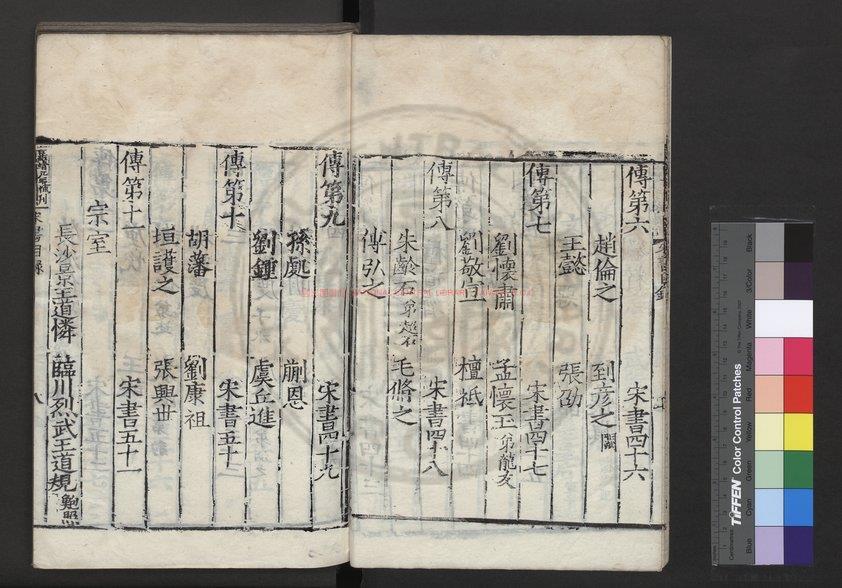 傳第六 宋書四十六
趙倫之 到彥之 闕
王懿 張劭
傳第七 宋書四十七
劉懷肅 孟懷玉 弟龍友
劉敬宣 檀祗
傳第八 宋書四十八
朱齡石 弟超石 毛脩之
傅弘之
傳第九 宋書四十九
孫處 蒯恩
劉鍾 虞丘進
傳第十 宋書五十
胡藩 劉康祖
垣護之 張興世
傳第十一 宋書五十一
宗室
長沙景王道憐 臨川烈武王道規 鮑照
宋書目錄 八
TIFFEN Color Control Patches
Blue Cyan Green Yellow Red Magenta White 3/Color Black